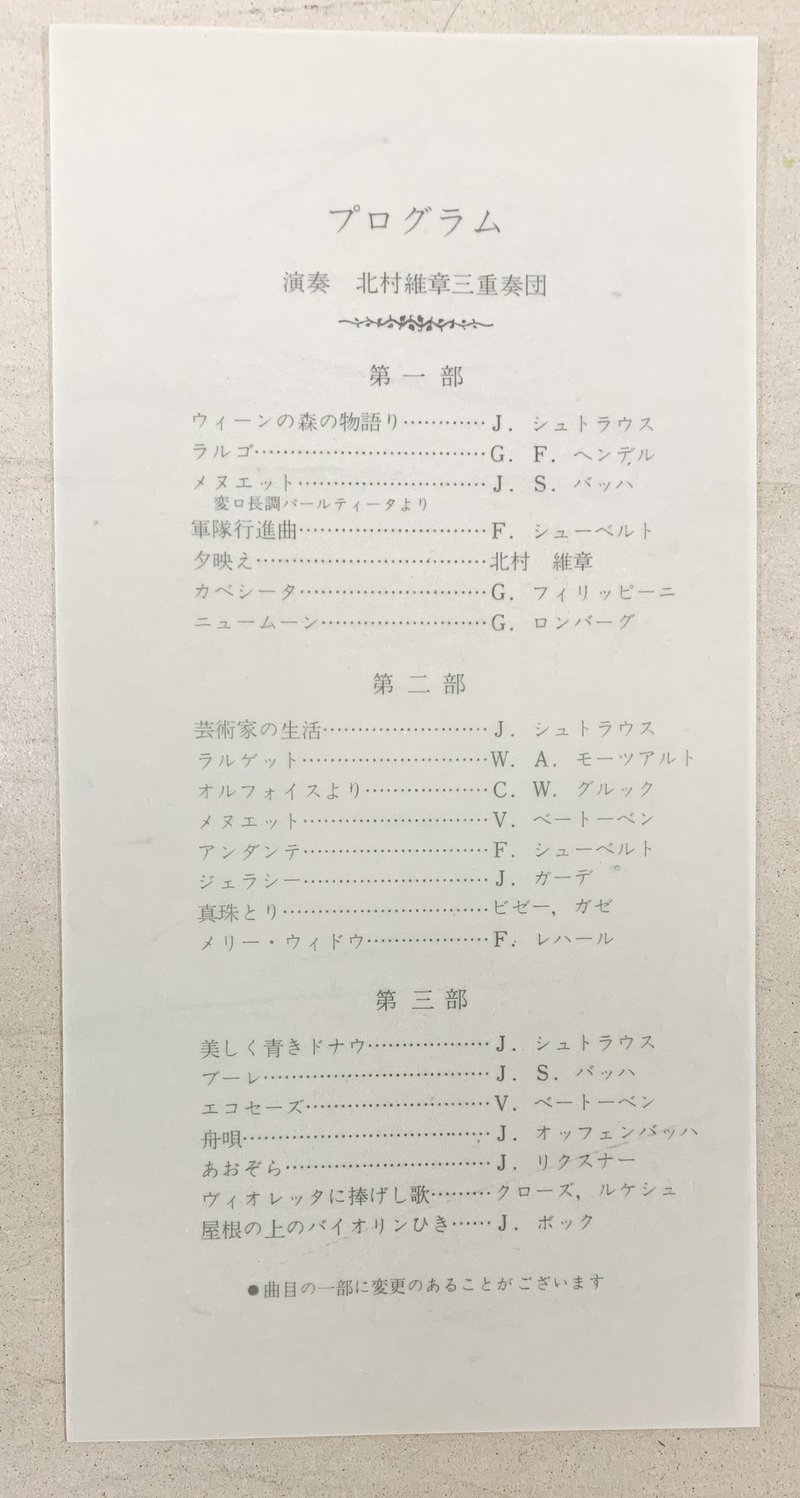 プログラム
演奏　北村維章三重奏団
第一部
ウィーンの森の物語り…………J. シュトラウス
ラルゴ……………………………G. F. ヘンデル
メヌエット………………………J. S. バッハ
変ロ長調パールティータより
軍隊行進曲………………………F. シューベルト
夕映え……………………………北村　維章
カベシータ………………………G. フィリッピーニ
ニュームーン……………………G. ロンバーグ
第二部
芸術家の生活……………………J. シュトラウス
ラルゲット………………………W. A. モーツアルト
オルフォイスより………………C. W. グルック
メヌエット………………………V. ベートーベン
アンダンテ………………………F. シューベルト
ジェラシー………………………J. ガーデ
真珠とり…………………………ビゼー, ガゼ
メリー・ウィドウ………………F. レハール
第三部
美しく青きドナウ………………J. シュトラウス
ブーレ……………………………J. S. バッハ
エコセーズ………………………V. ベートーベン
舟唄………………………………J. オッフェンバッハ
あおぞら…………………………J. リクスナー
ヴィオレッタに捧げし歌………クローズ, ルケシュ
屋根の上のバイオリンひき……J. ボック
●曲目の一部に変更のあることがございます